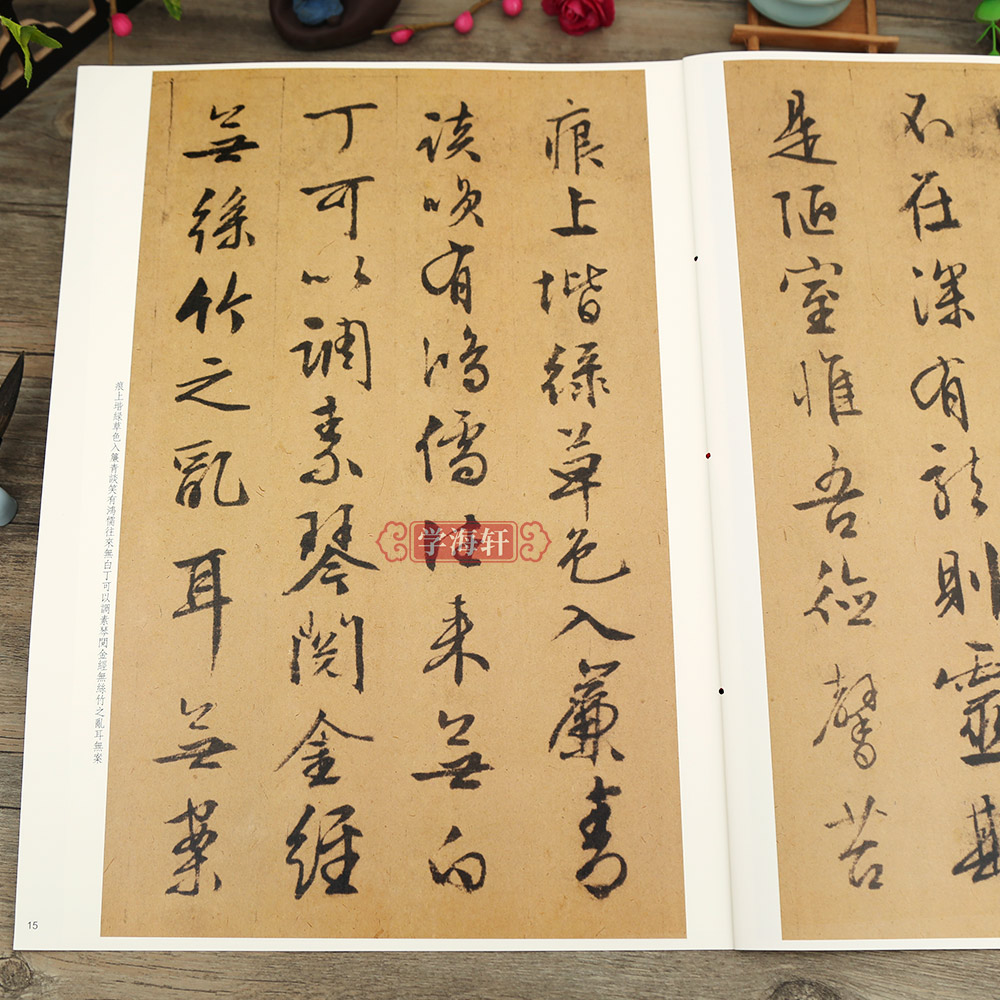 不在深有龍則靈斯
是陋室惟吾德馨苔
痕上堦綠草色入簾青
談咲有鴻儒往來無白
丁可以調素琴閱金經
無絲竹之亂耳無案
痕上堦緑草色入簾青談笑有鴻儒往來無白丁可以調素琴閱金經無絲竹之亂耳無案
15
学海轩